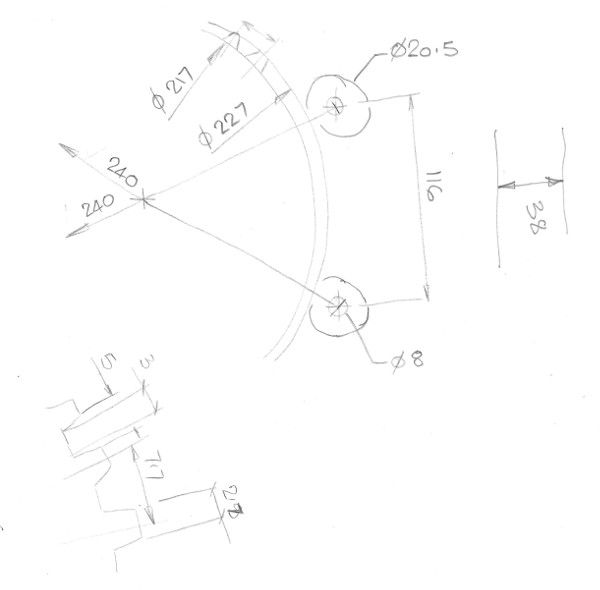 Ø20.5
Ø217
Ø227
240
240
116
38
Ø8
5
3
7.7